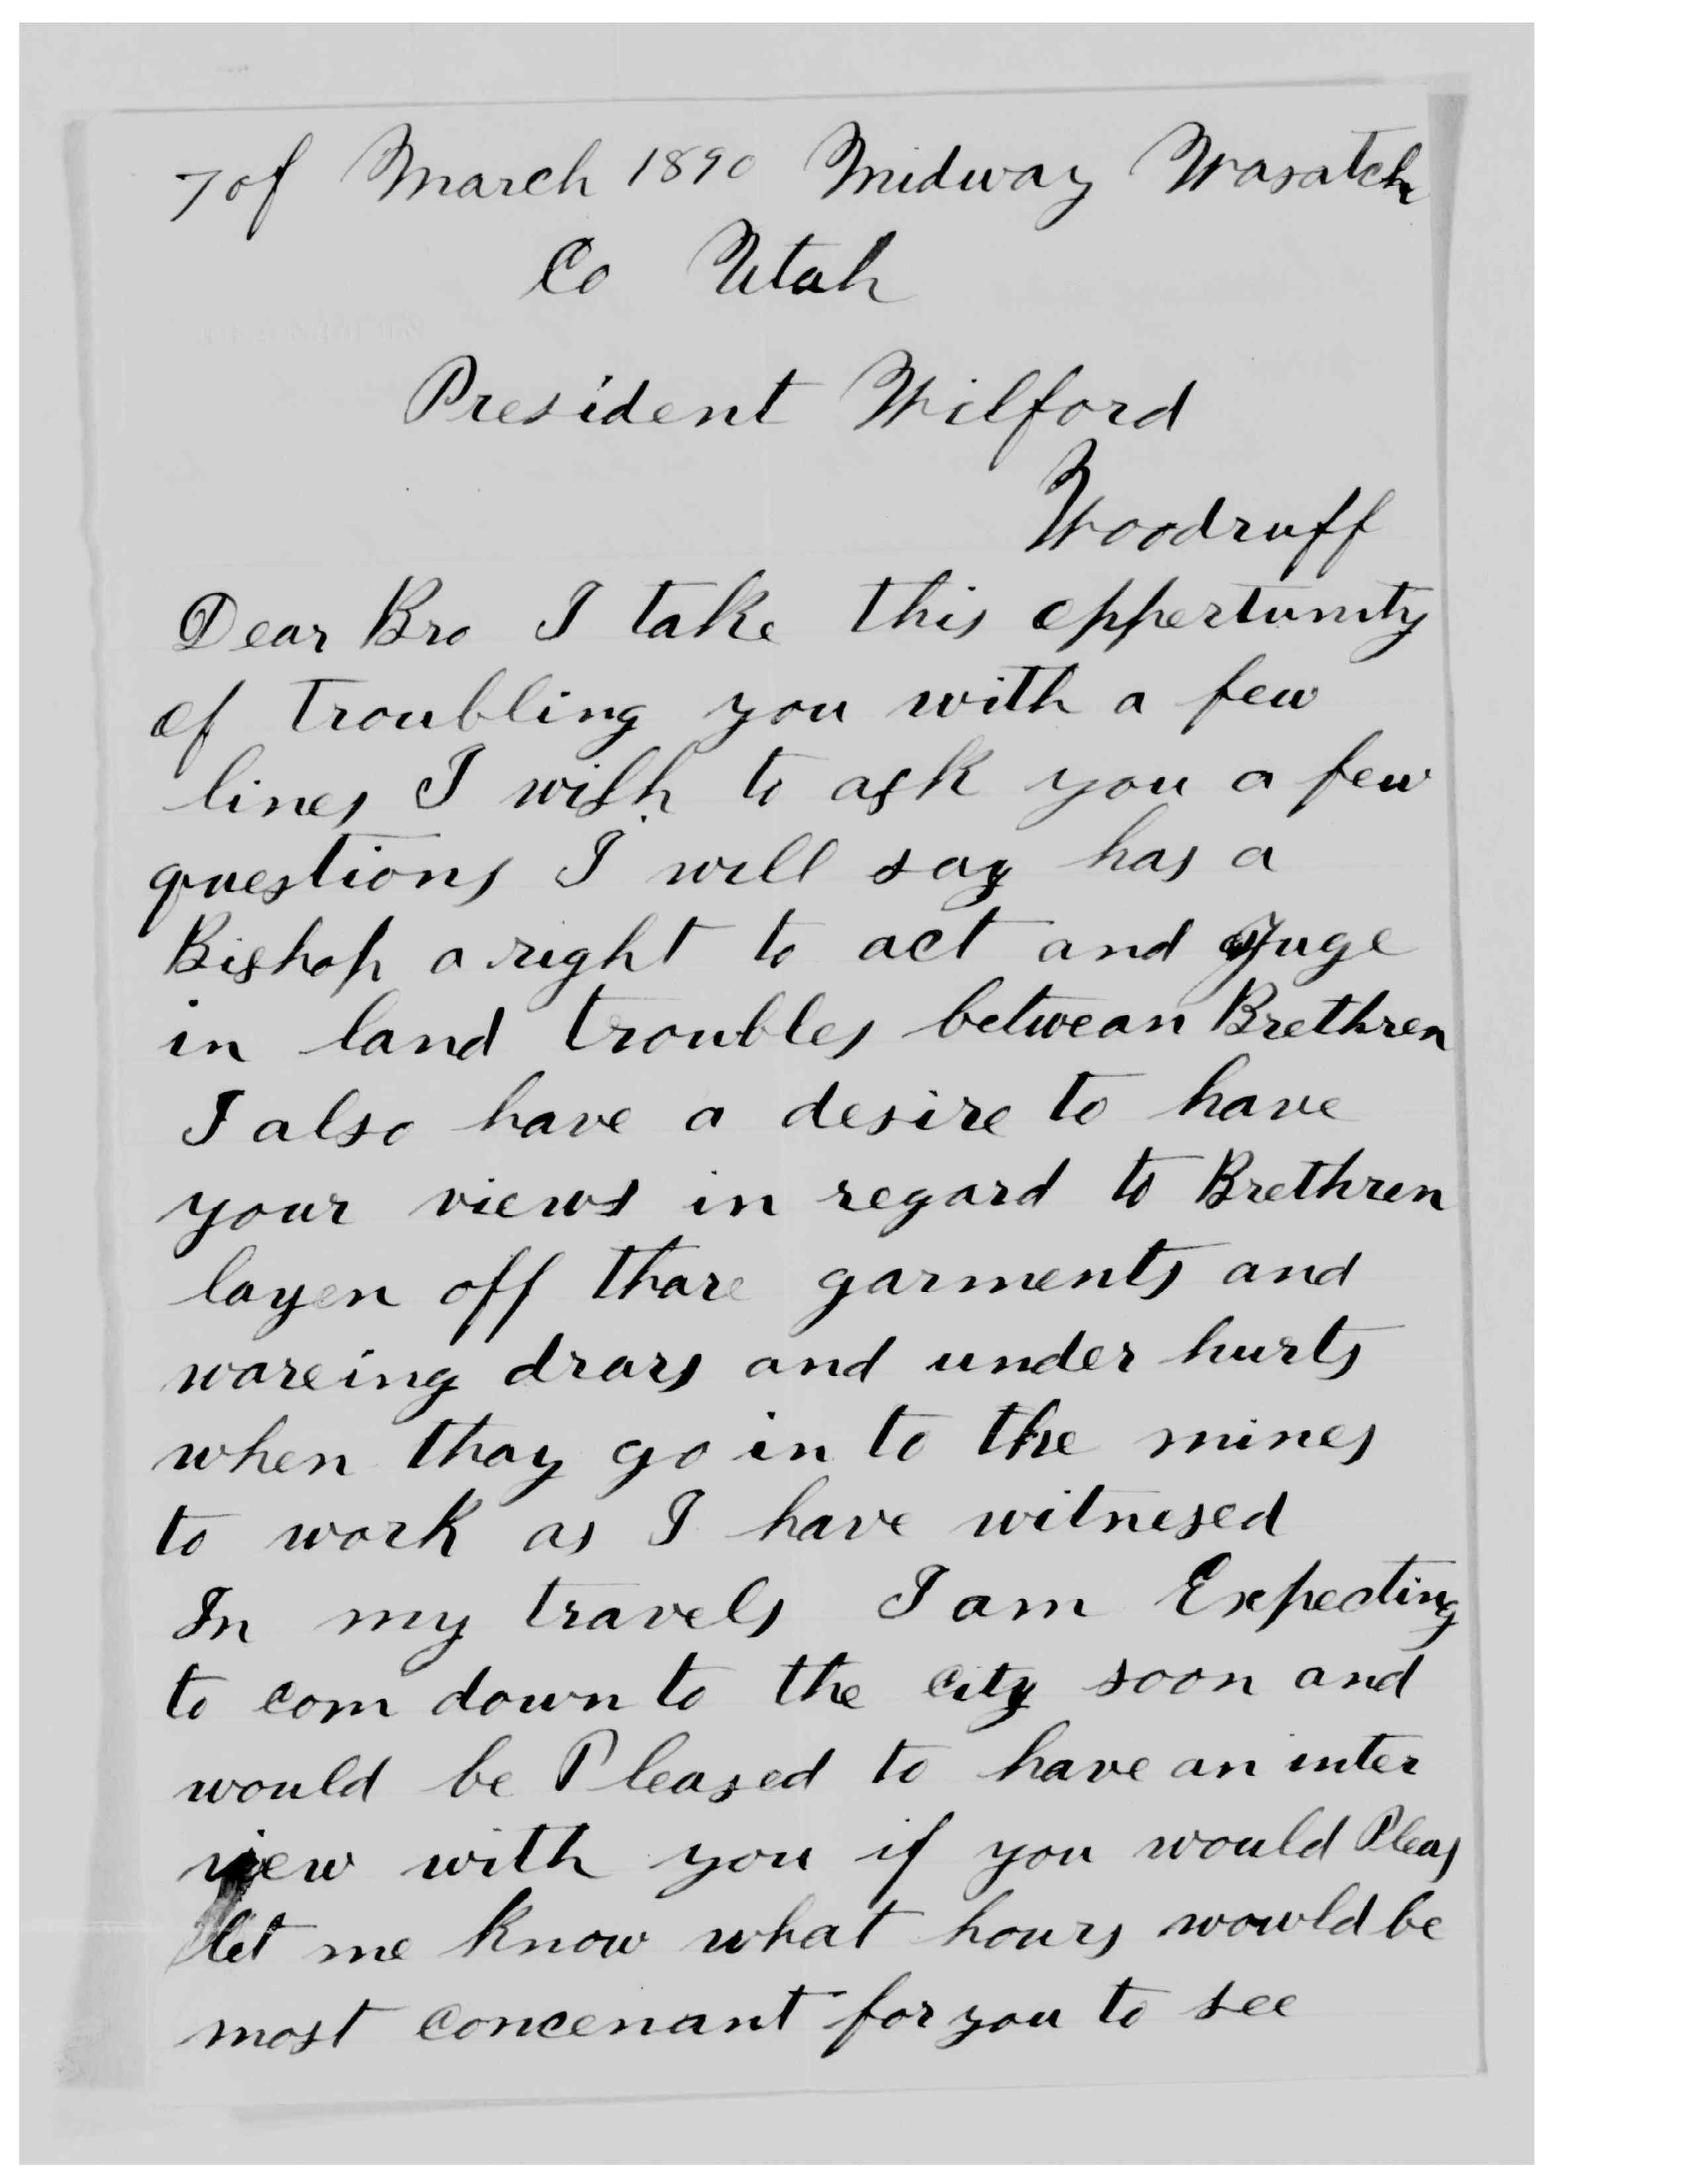 7 of March 1890 Midway Wasatch
Co Utah
President Wilford
Woodruff
Dear Bro I take this oppertunity
of troubling you with a few
lines I wish to ask you a few
questions I will say has a
Bishop a right to act and Juge
in land troubles betwean Brethren
I also have a desire to have
your views in regard to Brethren
layen off thare garments and
wareing drars and under hurts
when thay go in to the mines
to work as I have witnesed
In my travels I am Expecting
to com down to the city soon and
would be Pleased to have an inter
view with you if you would Pleas
let me know what hours wowld be
most concenant for you to see